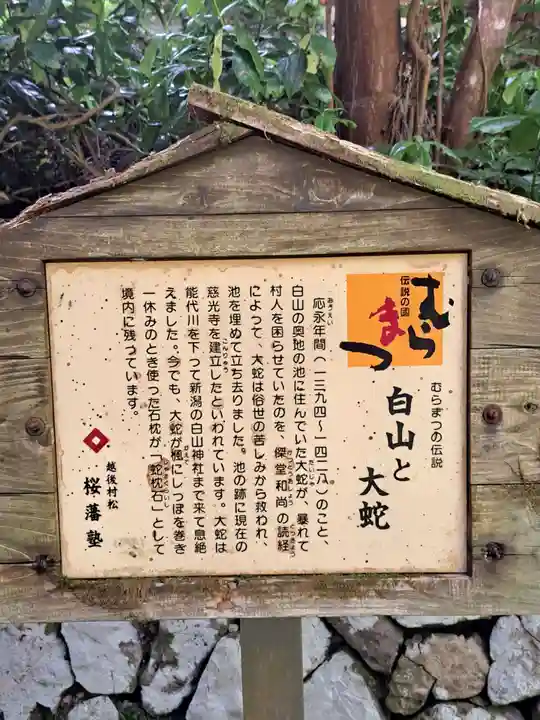 伝説の國
むらまつ
むらまつの伝説
白山と
大蛇
応永年間（一三九四〜一四二八）のこと、
白山の奥地の池に住んでいた大蛇が、暴れて
村人を困らせていたのを、傑堂和尚の読経
によって、大蛇は俗世の苦しみから救われ、
池を埋めて立ち去りました。池の跡に現在の
慈光寺を建立したといわれています。大蛇は
能代川を下って新潟の白山神社まで来て息絶
えました。今でも、大蛇が楓にしっぽを巻き
一休みのとき使った石枕が「蛇枕石」として
境内に残っています。
越後村松
桜藩塾